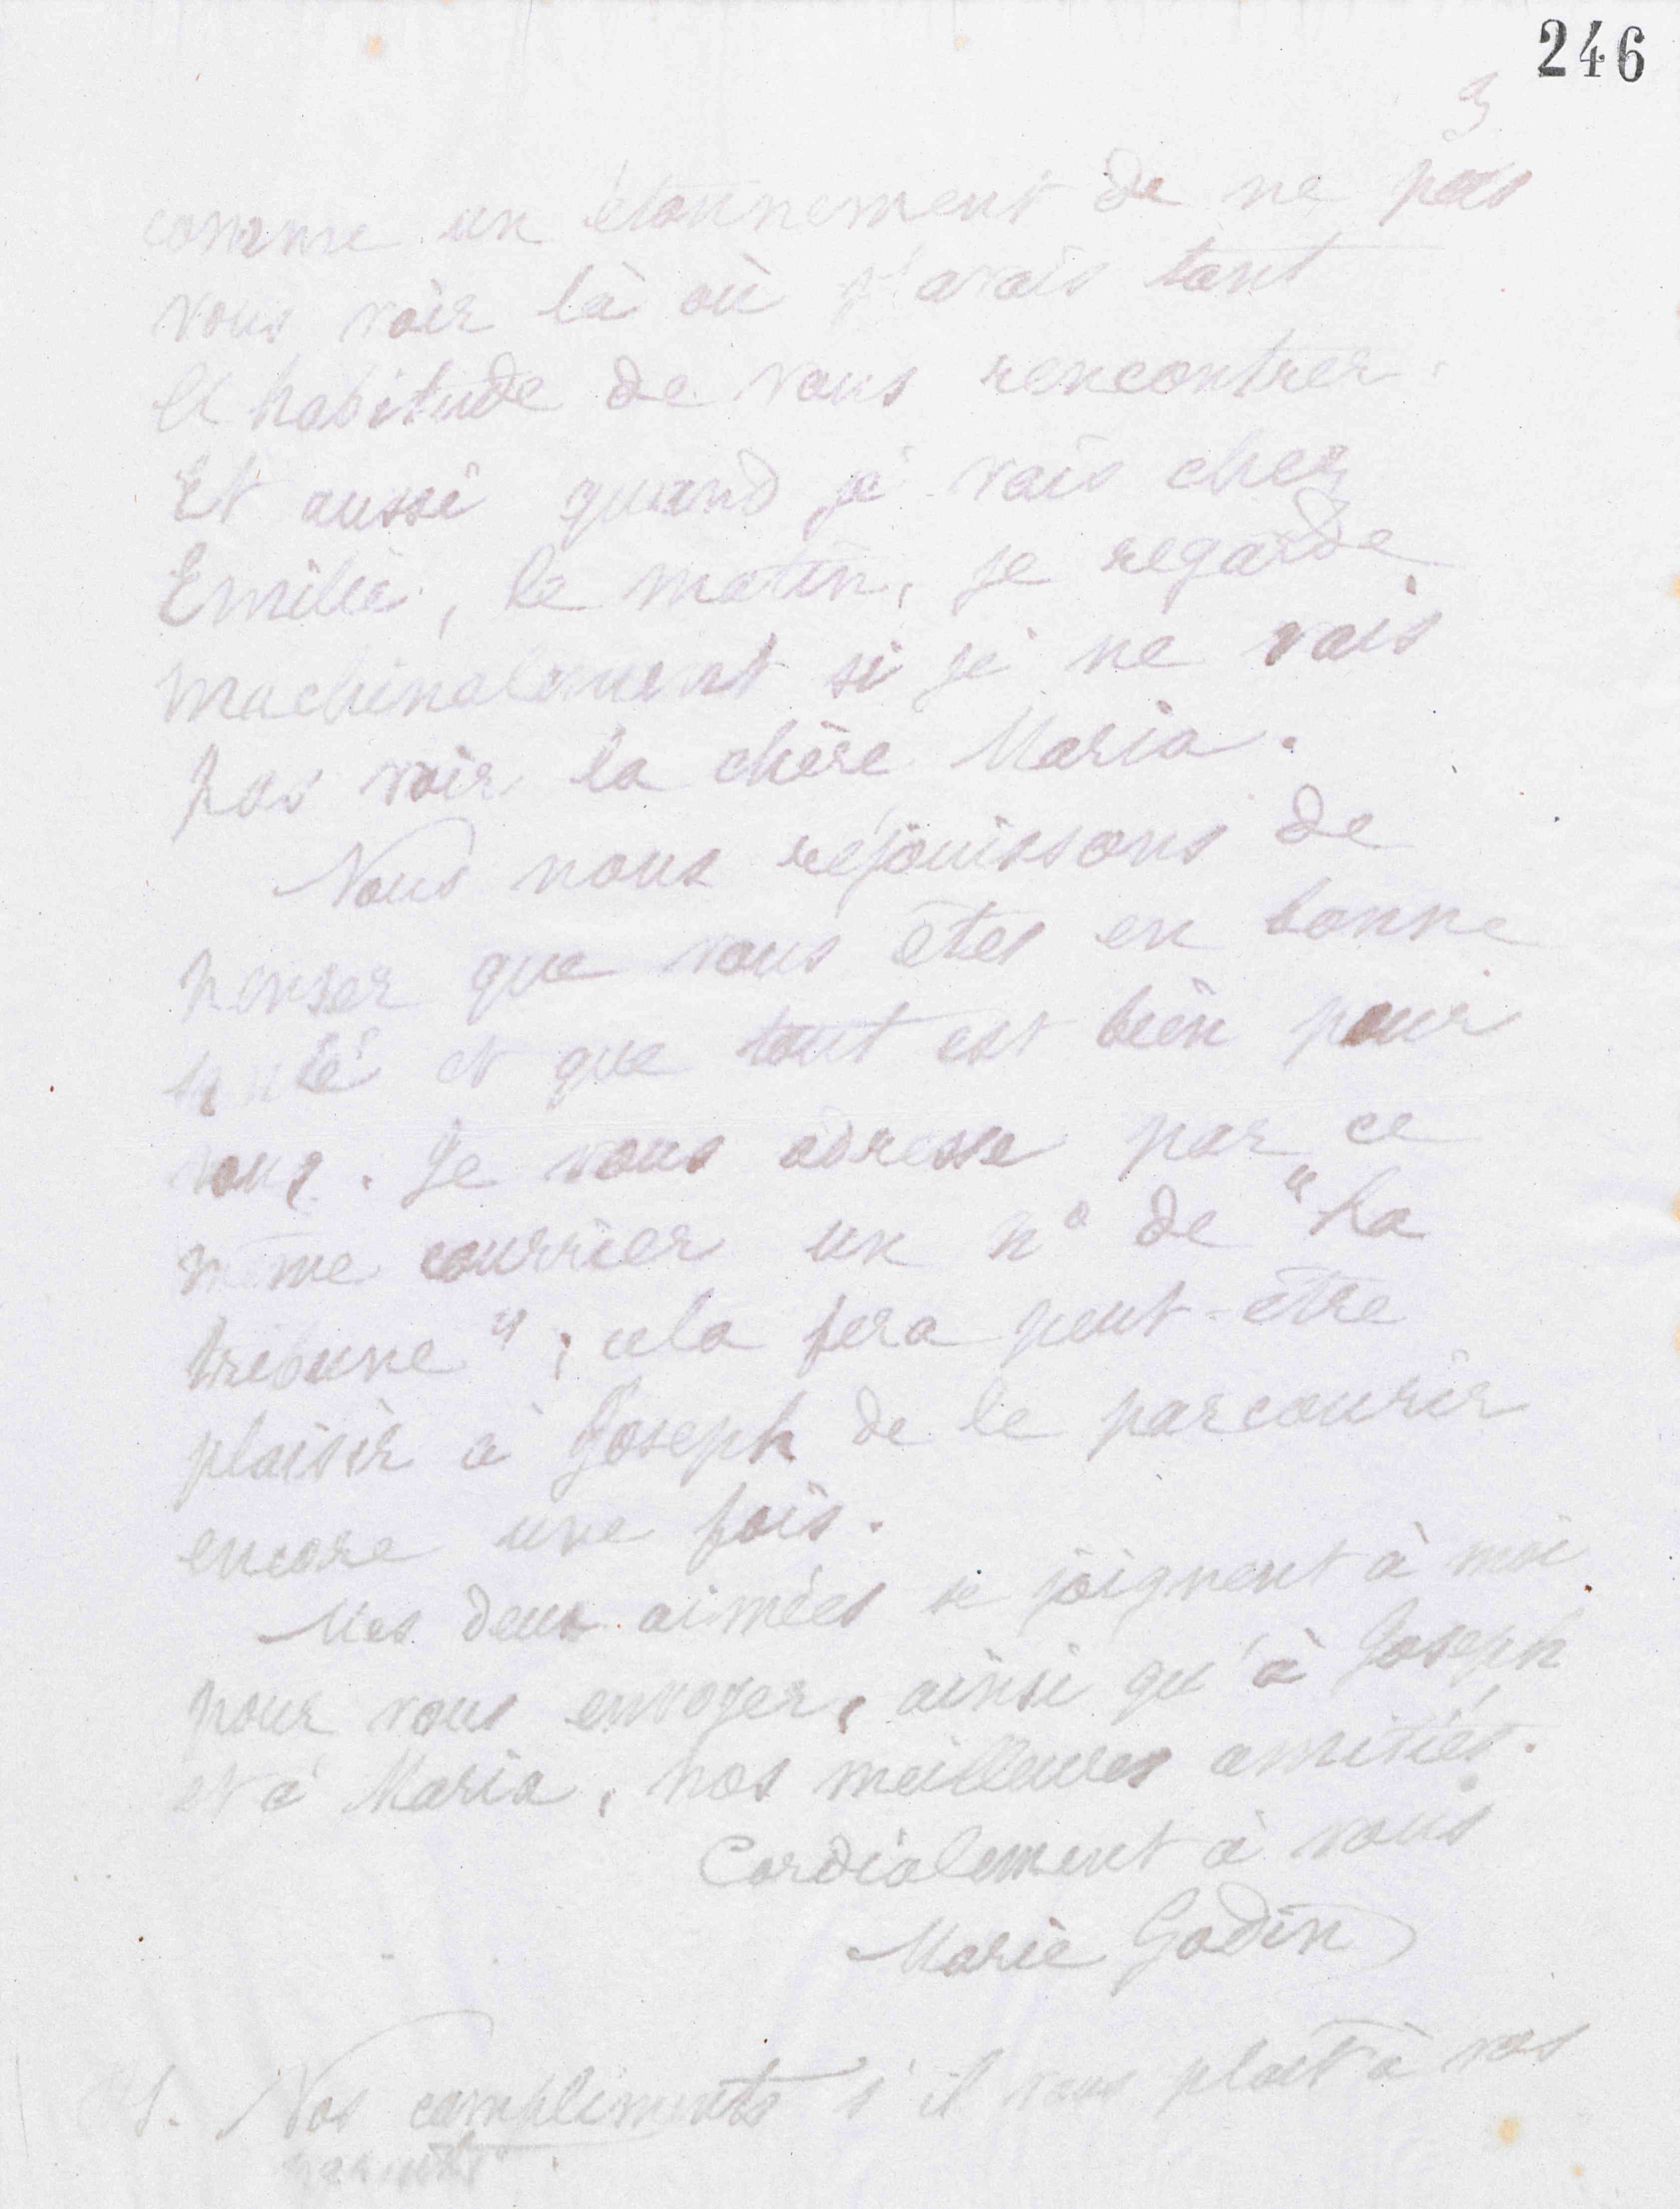 246
3
comme un étonnement de ne pas
vous voir là où j'avais tant
l'habitude de vous rencontrer.
Et aussi quand je vais chez
Emilie, le matin, je regarde
machinalement si je ne vais
pas voir la chère Maria.
Nous nous réjouissons de
penser que vous êtes en bonne
santé et que tout est bien pour
vous. Je vous adresse par ce
même courrier un n° de "La
tribune"; cela fera peut-être
plaisir à Joseph de le parcourir
encore une fois.
Mes deux aimées se joignent à moi
pour vous envoyer, ainsi qu'à Joseph
et à Maria, nos meilleures amitiés.
Cordialement à vous
Marie Godin
PS. Nos compliments s'il vous plaît à vos
parents.